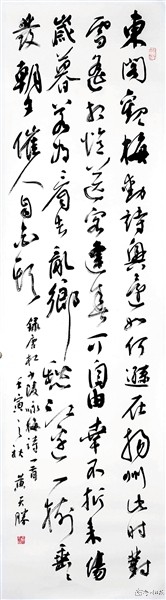 東閣觀梅動詩興還如何遜在揚州此時對
雪遙相憶送客逢春可自由幸不折來傷
歲暮若為看去亂鄉愁江邊一樹垂垂
發朝夕催人自白頭 錄唐杜少陵咏梅詩一首
壬寅之秋 黃天勝